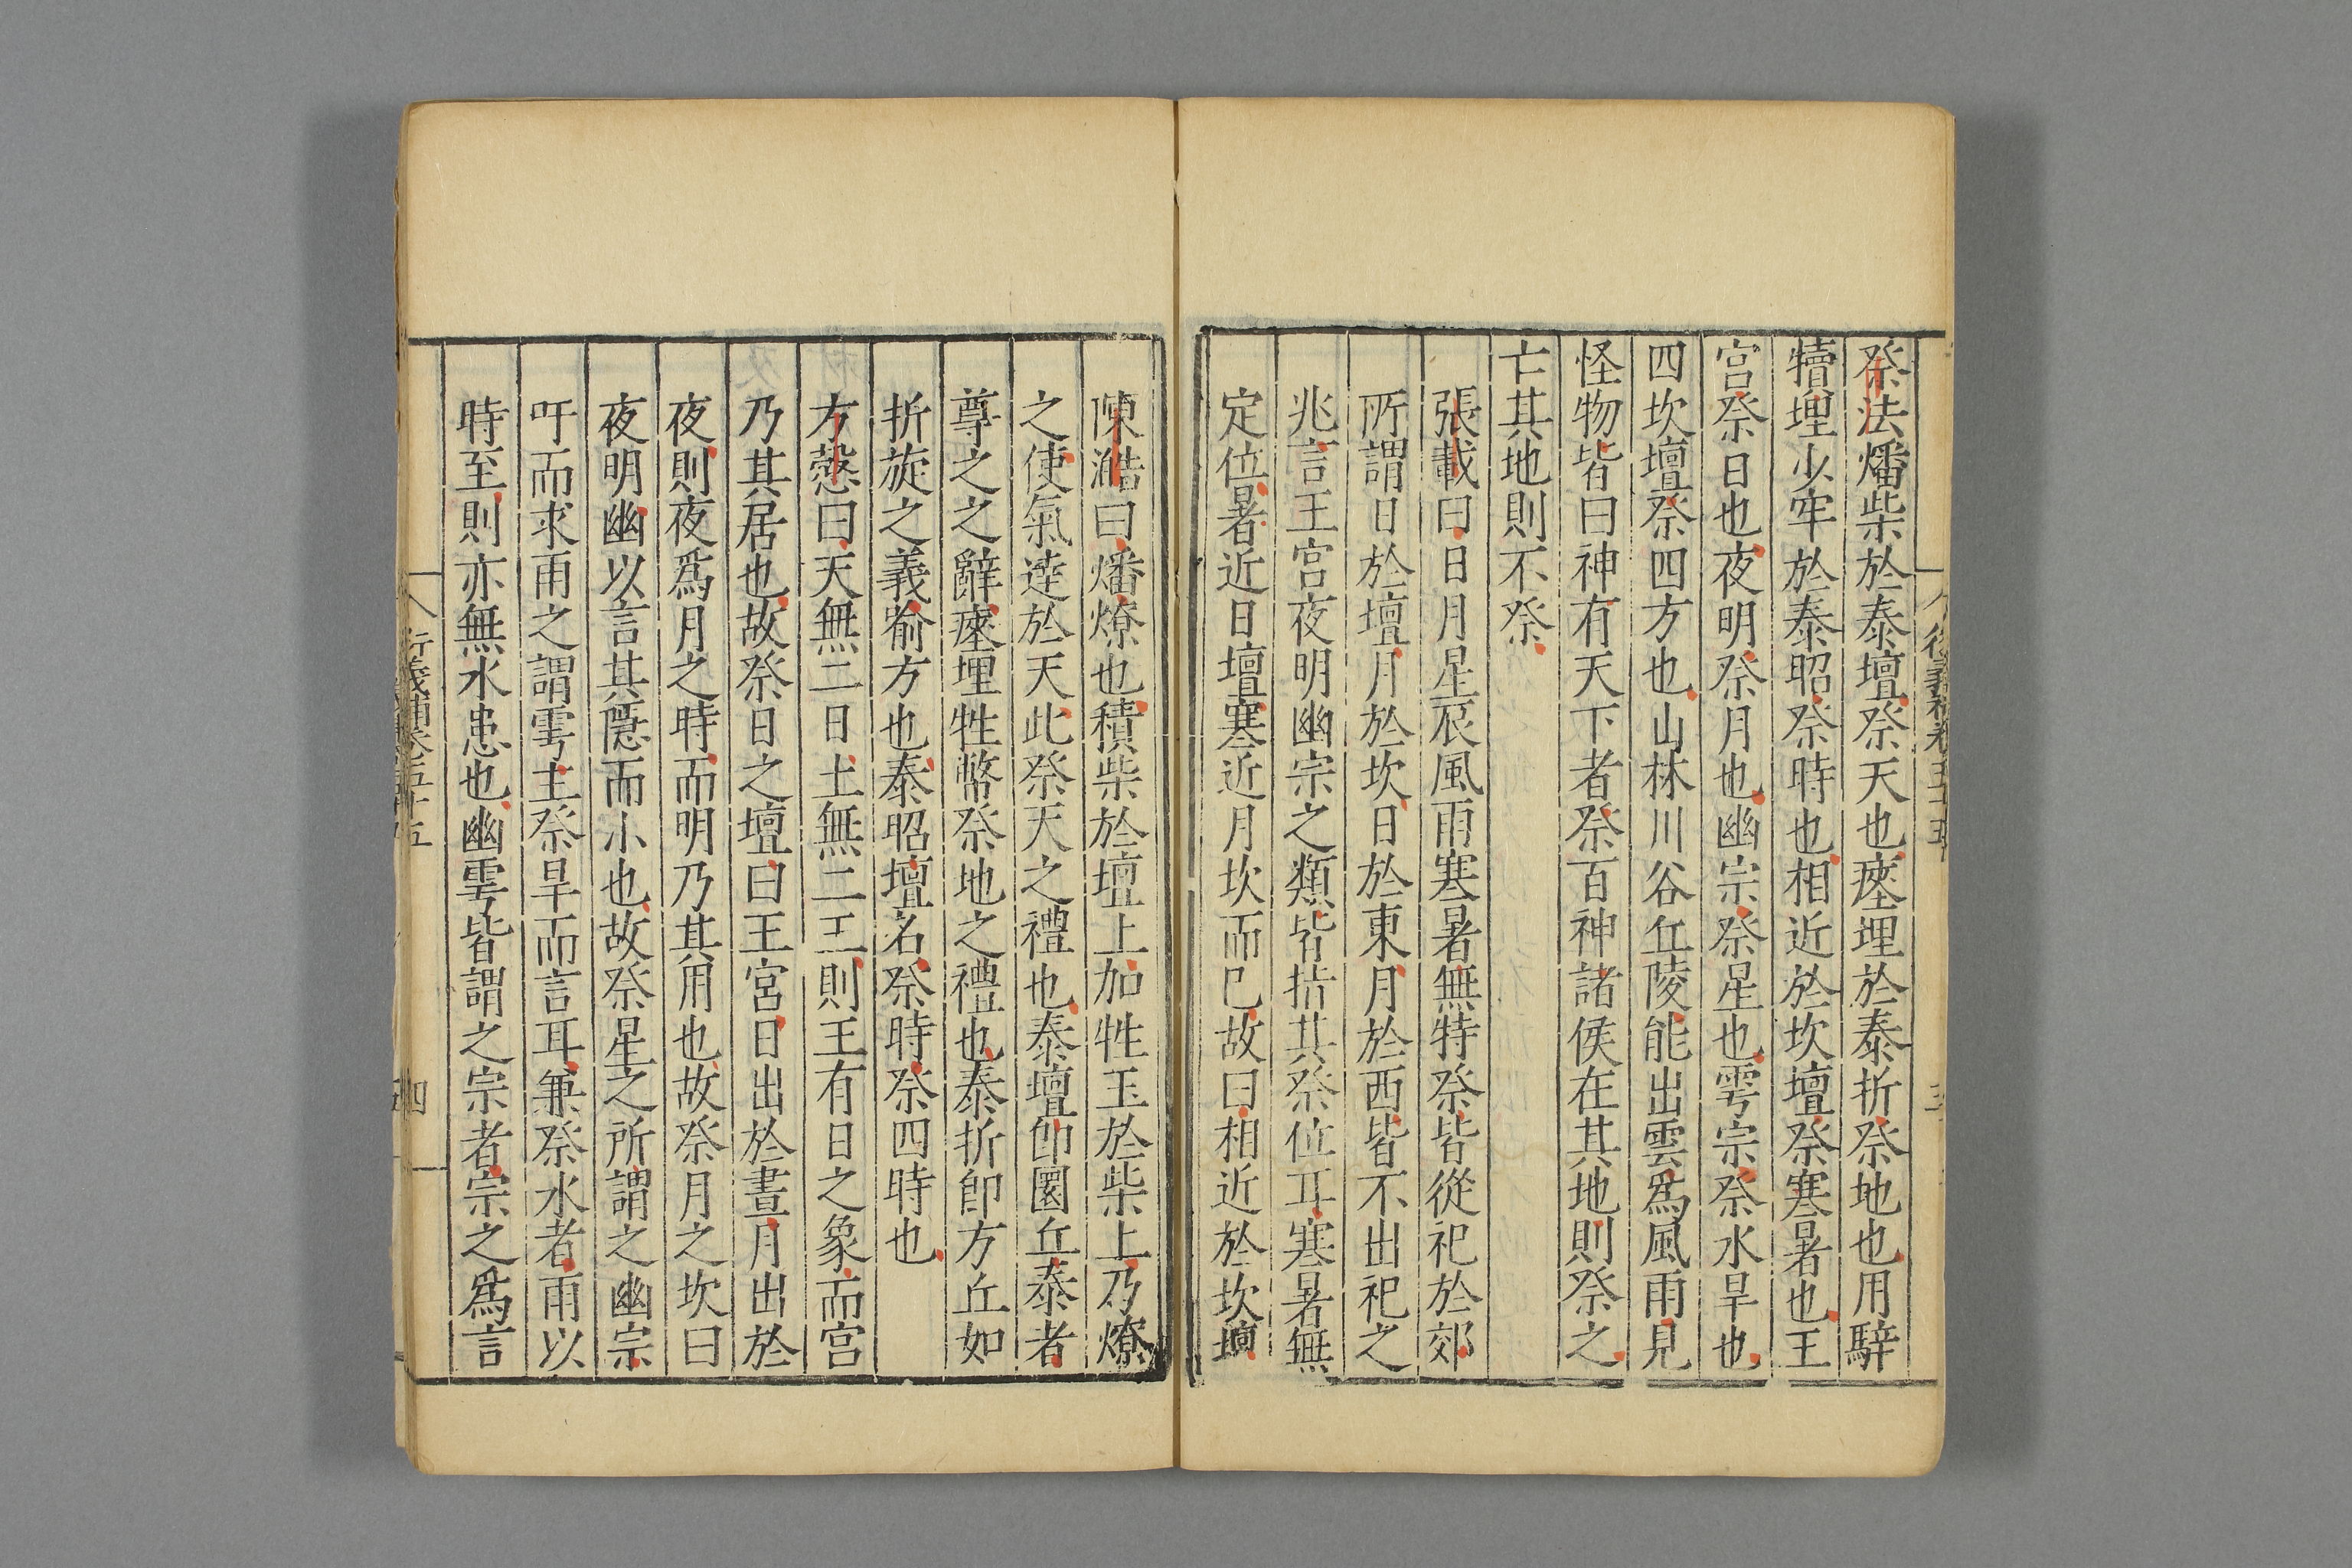 祭法燔柴於泰壇祭天也瘞埋於泰折祭地也用騂
犢埋少牢於泰昭祭時也相近於坎壇祭寒暑也王
宮祭日也夜明祭月也幽宗祭星也雩宗祭水旱也
四坎壇祭四方也山林川谷丘陵能出雲爲風雨見
怪物皆曰神有天下者祭百神諸侯在其地則祭之
亡其地則不祭
張載曰日月星辰風雨寒暑無特祭皆從祀於郊
所謂日於壇月於坎日於東月於西皆不出祀之
兆言王宮夜明幽宗之類皆指其祭位耳寒暑無
定位暑近日壇寒近月坎而已故曰相近於坎壇
陳澔曰燔燎也積柴於壇上加牲玉於柴上乃燎
之使氣達於天此祭天之禮也泰壇卽圜丘泰者
尊之之辭瘞埋牲幣祭地之禮也泰折卽方丘如
折旋之義喻方也泰昭壇名祭時祭四時也
方慤曰天無二日土無二王則王有日之象而宮
乃其居也故祭日之壇曰王宮日出於晝月出於
夜則夜爲月之時而明乃其用也故祭月之坎曰
夜明幽以言其隱而小也故祭星之所謂之幽宗
吁而求雨之謂雩主祭旱而言耳兼祭水者雨以
時至則亦無水患也幽雩皆謂之宗者宗之爲言
衍義補卷五十五
四